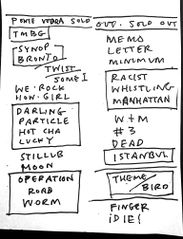 POME VTBRA SOLD OUT. SOLD OUT
TMBG
SYNOP
BRONTO
TWIST
SOME I
WE·ROCK
HON·GIRL
DARLING
PARTICLE
HOT CHA
LUCKY
STILLUB
MOON
OPERATION
ROAD
WORM
MEMO
LETTER
MINIMUM
RACIST
WHISTLING
MANHATTAN
W+M
#3
DEAD
ISTANBUL
THEME/
BIRD
FINGER
iDIE!